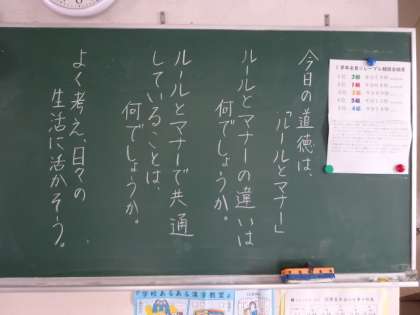 今日の道徳は、
「ルールとマナー」
ルールとマナーの違いは
何でしょうか。
ルールとマナーで共通
していることは、
何でしょうか。
よく考え、日々の
生活に活かそう。
3組
1組
2組
5組
4組
学校あるある漢字教室